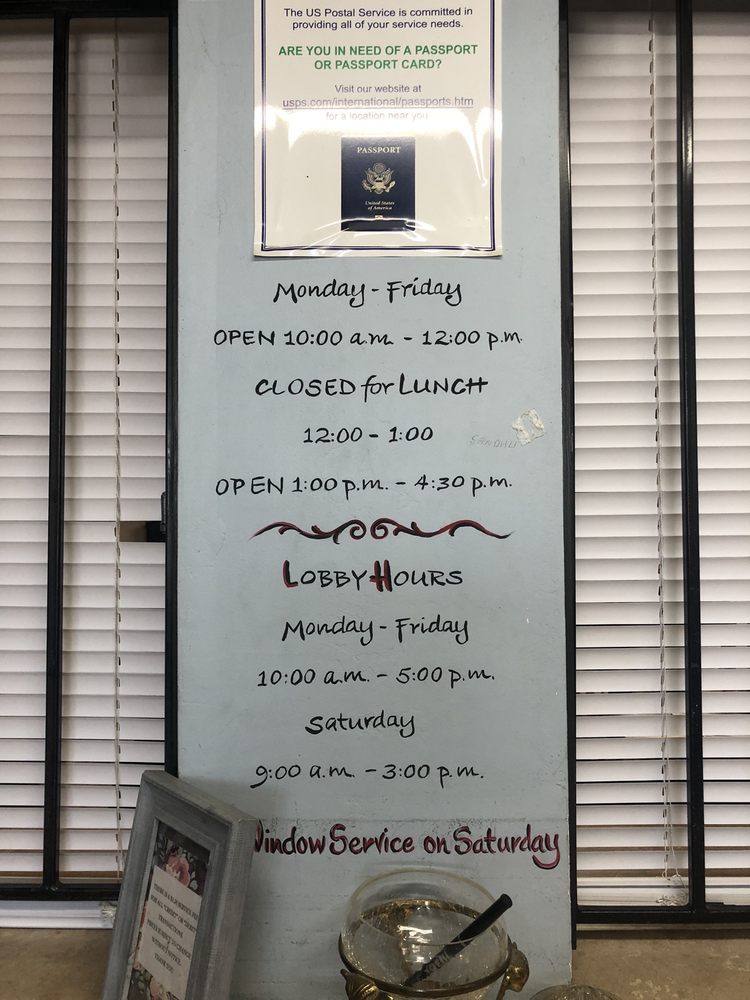 The US Postal Service is committed in
providing all of your service needs.
ARE YOU IN NEED OF A PASSPORT
OR PASSPORT CARD?
Visit our website at
usps.com/international/passports.htm
for a location near you
PASSPORT
United States
of America
Monday - Friday
OPEN 10:00 a.m. - 12:00 p.m.
CLOSED for LUNCH
12:00 - 1:00
OPEN 1:00 p.m. - 4:30 p.m.
LOBBY HOURS
Monday - Friday
10:00 a.m. - 5:00 p.m.
Saturday
9:00 a.m. - 3:00 p.m.
Window Service on Saturday
TRANSACTIONS
WITHOUT NOTICE.
THANK YOU